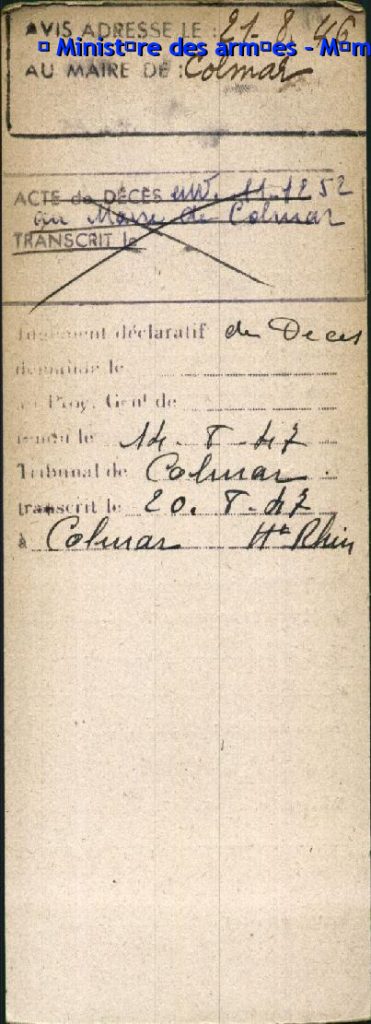 AVIS ADRESSE LE : 21-8.46
© Ministère des armées - Mém
AU MAIRE DE : Colmar
ACTE de DÉCÈS env. 11.12 52
au Maire de Colmar
TRANSCRIT le
Jugement déclaratif de Deces
demandé le
au Proc. Genl de
rendu le 14. 8-47
Tribunal de Colmar.
transcrit le 20. 8-47
à Colmar Ht Rhin